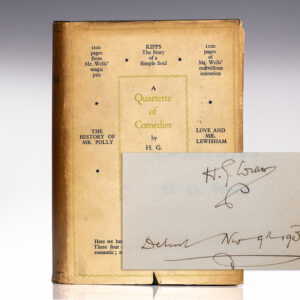 1100
pages
from
Mr. Wells'
magic
pen
KIPPS
The Story
of a
Simple Soul
1100
pages
of
Mr. Wells'
marvelous
invention
A
Quartette
of
Comedies
by
H. G.
THE
HISTORY OF
MR. POLLY
LOVE AND
MR.
LEWISHAM
Here we ha
Four
romantic;
H. G. Wells
Detroit Nov